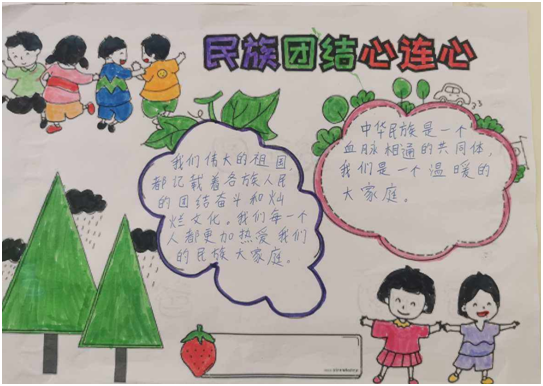 民族团结心连心
我们伟大的祖国,
都记载着各族人民
的团结奋斗和灿
烂文化。我们每一个
人都更加热爱我们
的民族大家庭。
中华民族是一个
血脉相通的共同体,
我们是一个温暖的
大家庭。